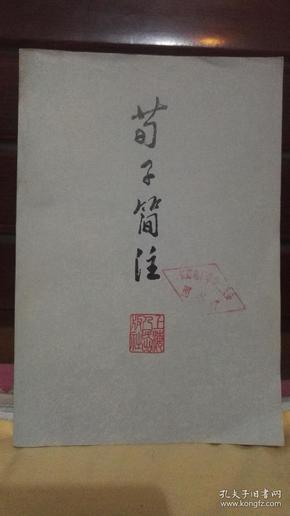 荀子简注
上海
人民出
版社
孔夫子旧书网
kongfz.com